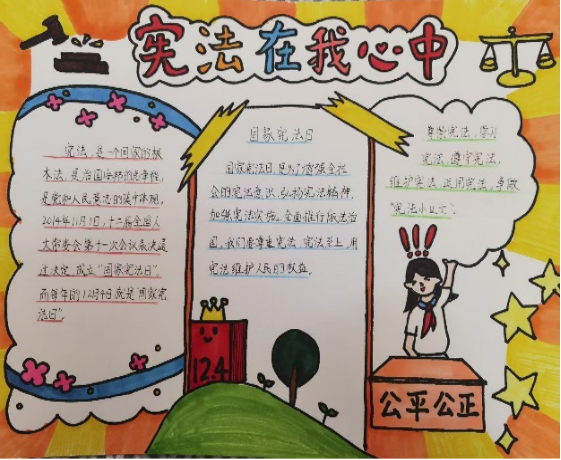 宪法在我心中
宪法,是一个国家的根
本法,是治国安邦的总章程,
是党和人民意志的集中体现,
2014年11月1日,十二届全国人
大常委会第十一次会议表决通
过决定,成立“国家宪法日”。
而每年的12月4日就是“国家宪
法日”。
国家宪法日
国家宪法日,是为了增强全社
会的宪法意识,弘扬宪法精神,
加强宪法实施,全面推行依法治
国,我们要尊重宪法,宪法至上,用
宪法维护人民的权益。
12.4
争做宪法,学习
宪法,遵守宪法,
维护宪法,运用宪法,争做
“宪法小卫士”。
公平公正